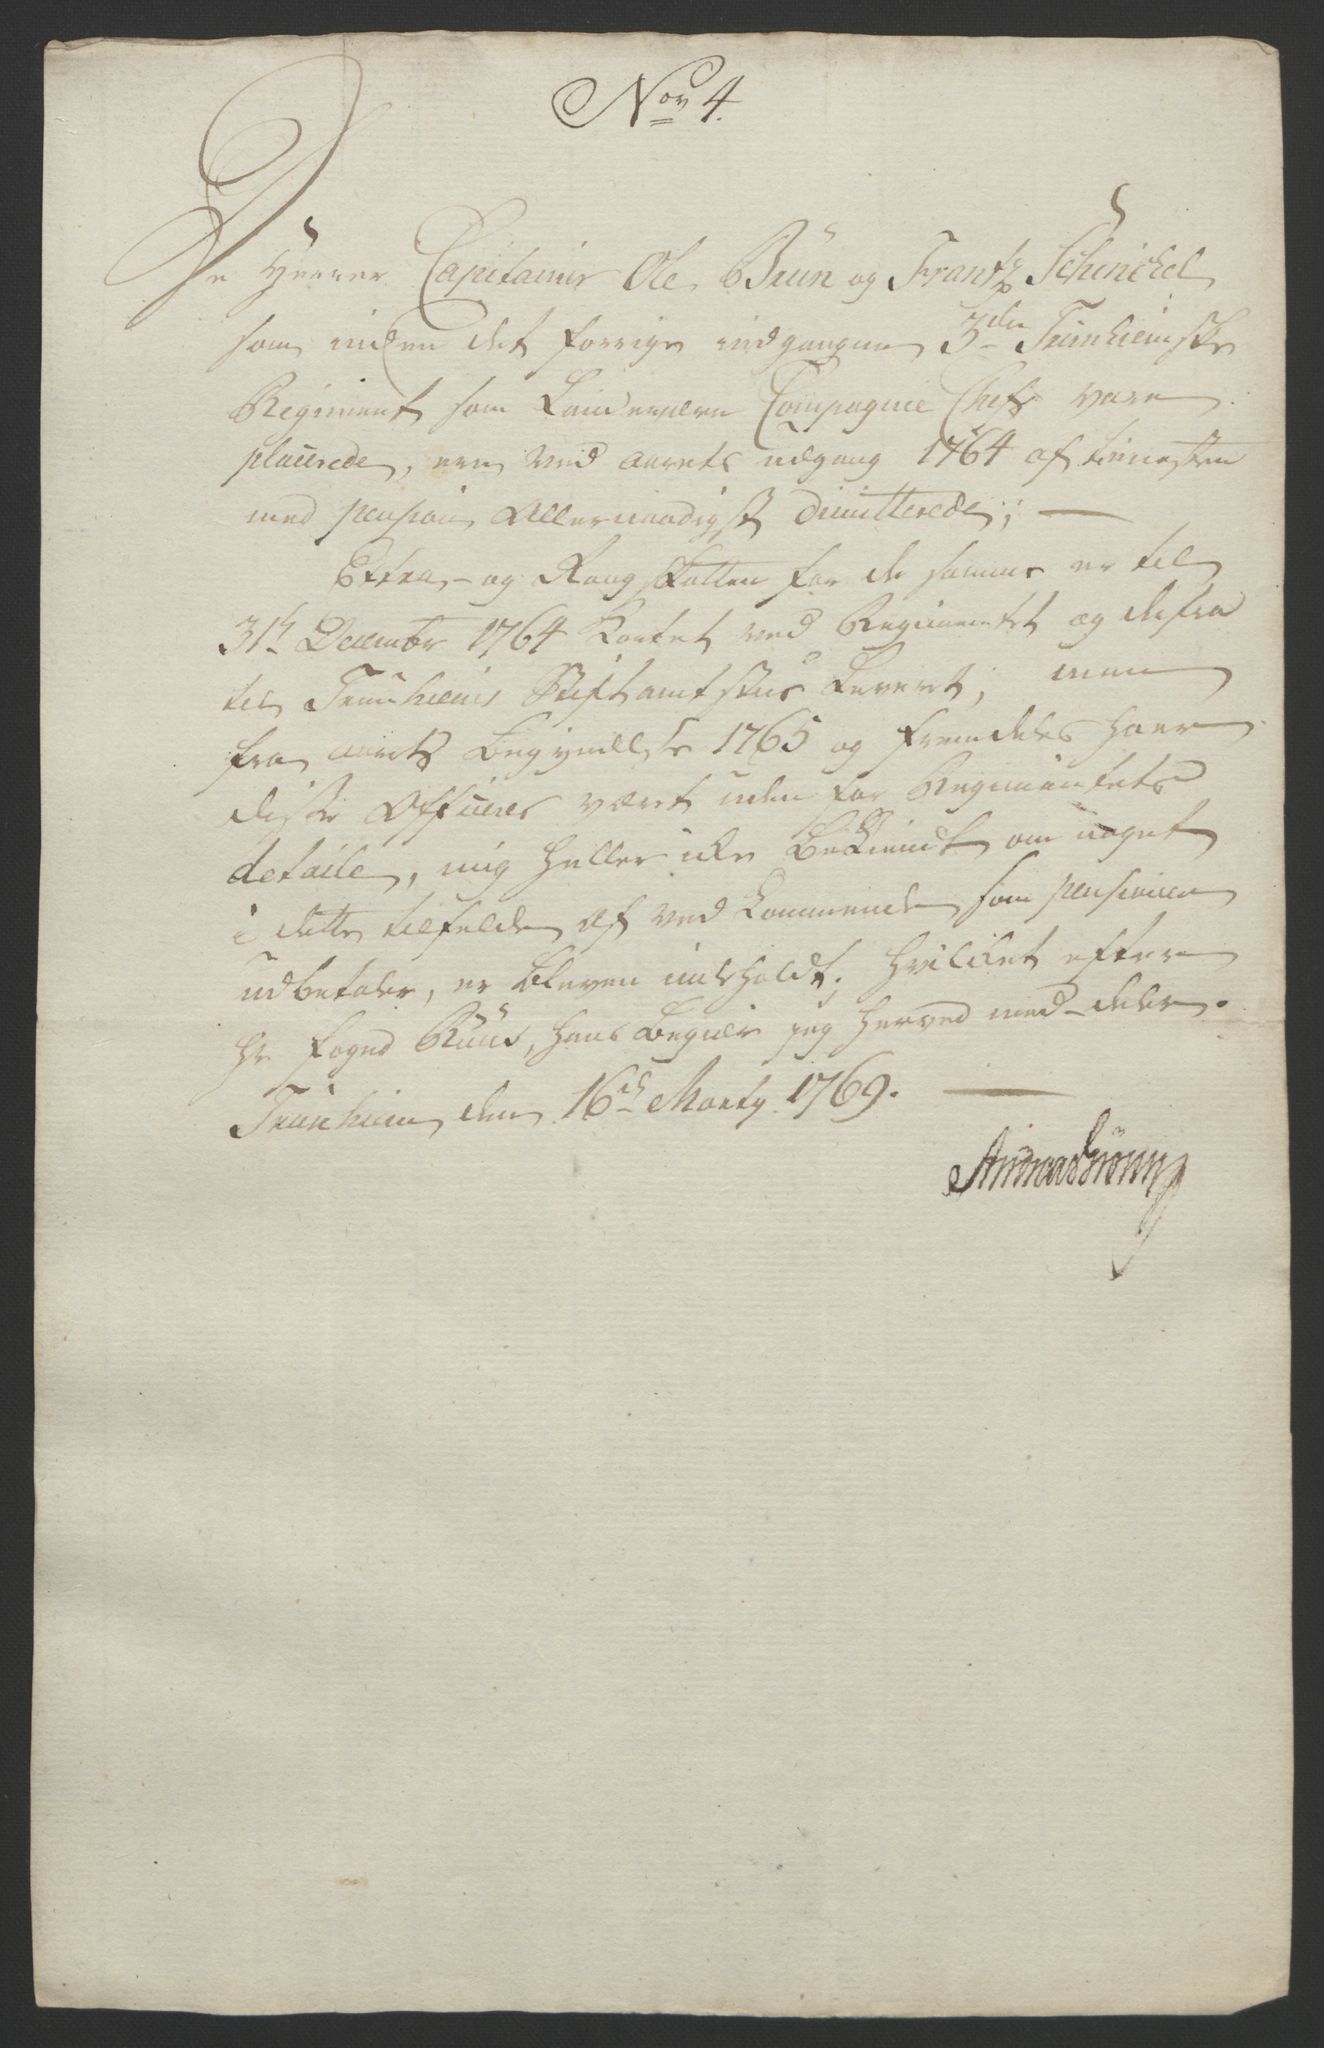 No 4.
De Herrer Capitainer Ole Brün og Frantz Schinckel
som inden det forrige indgangne 3die Trünhiemske
Regiment som Landeværn Compagnie Chefs vare
placerede, ere ved aarets udgang 1764 af tienesten
med pension Allernaadigst dimitterede; —
Extra- og Rangskatten for de samme er til
31te Decembr 1764 Kortet ved Regimentet og derfra
til Trünhiems Stiftamtstue Leveret; men
fra aarets Begyndelse 1765 og fremdeles haver
disse Officerer været uden for Regimentets
detaile, mig heller icke Bekiendt om noget
i dette tilfelde af ved Kommende som pensionen
udbetaler, er bleven indeholdt. hvilcket efter
Hr foged Rüüs, hans Begier jeg herved med-deler.
Trünhiem den 16de Marty 1769. —